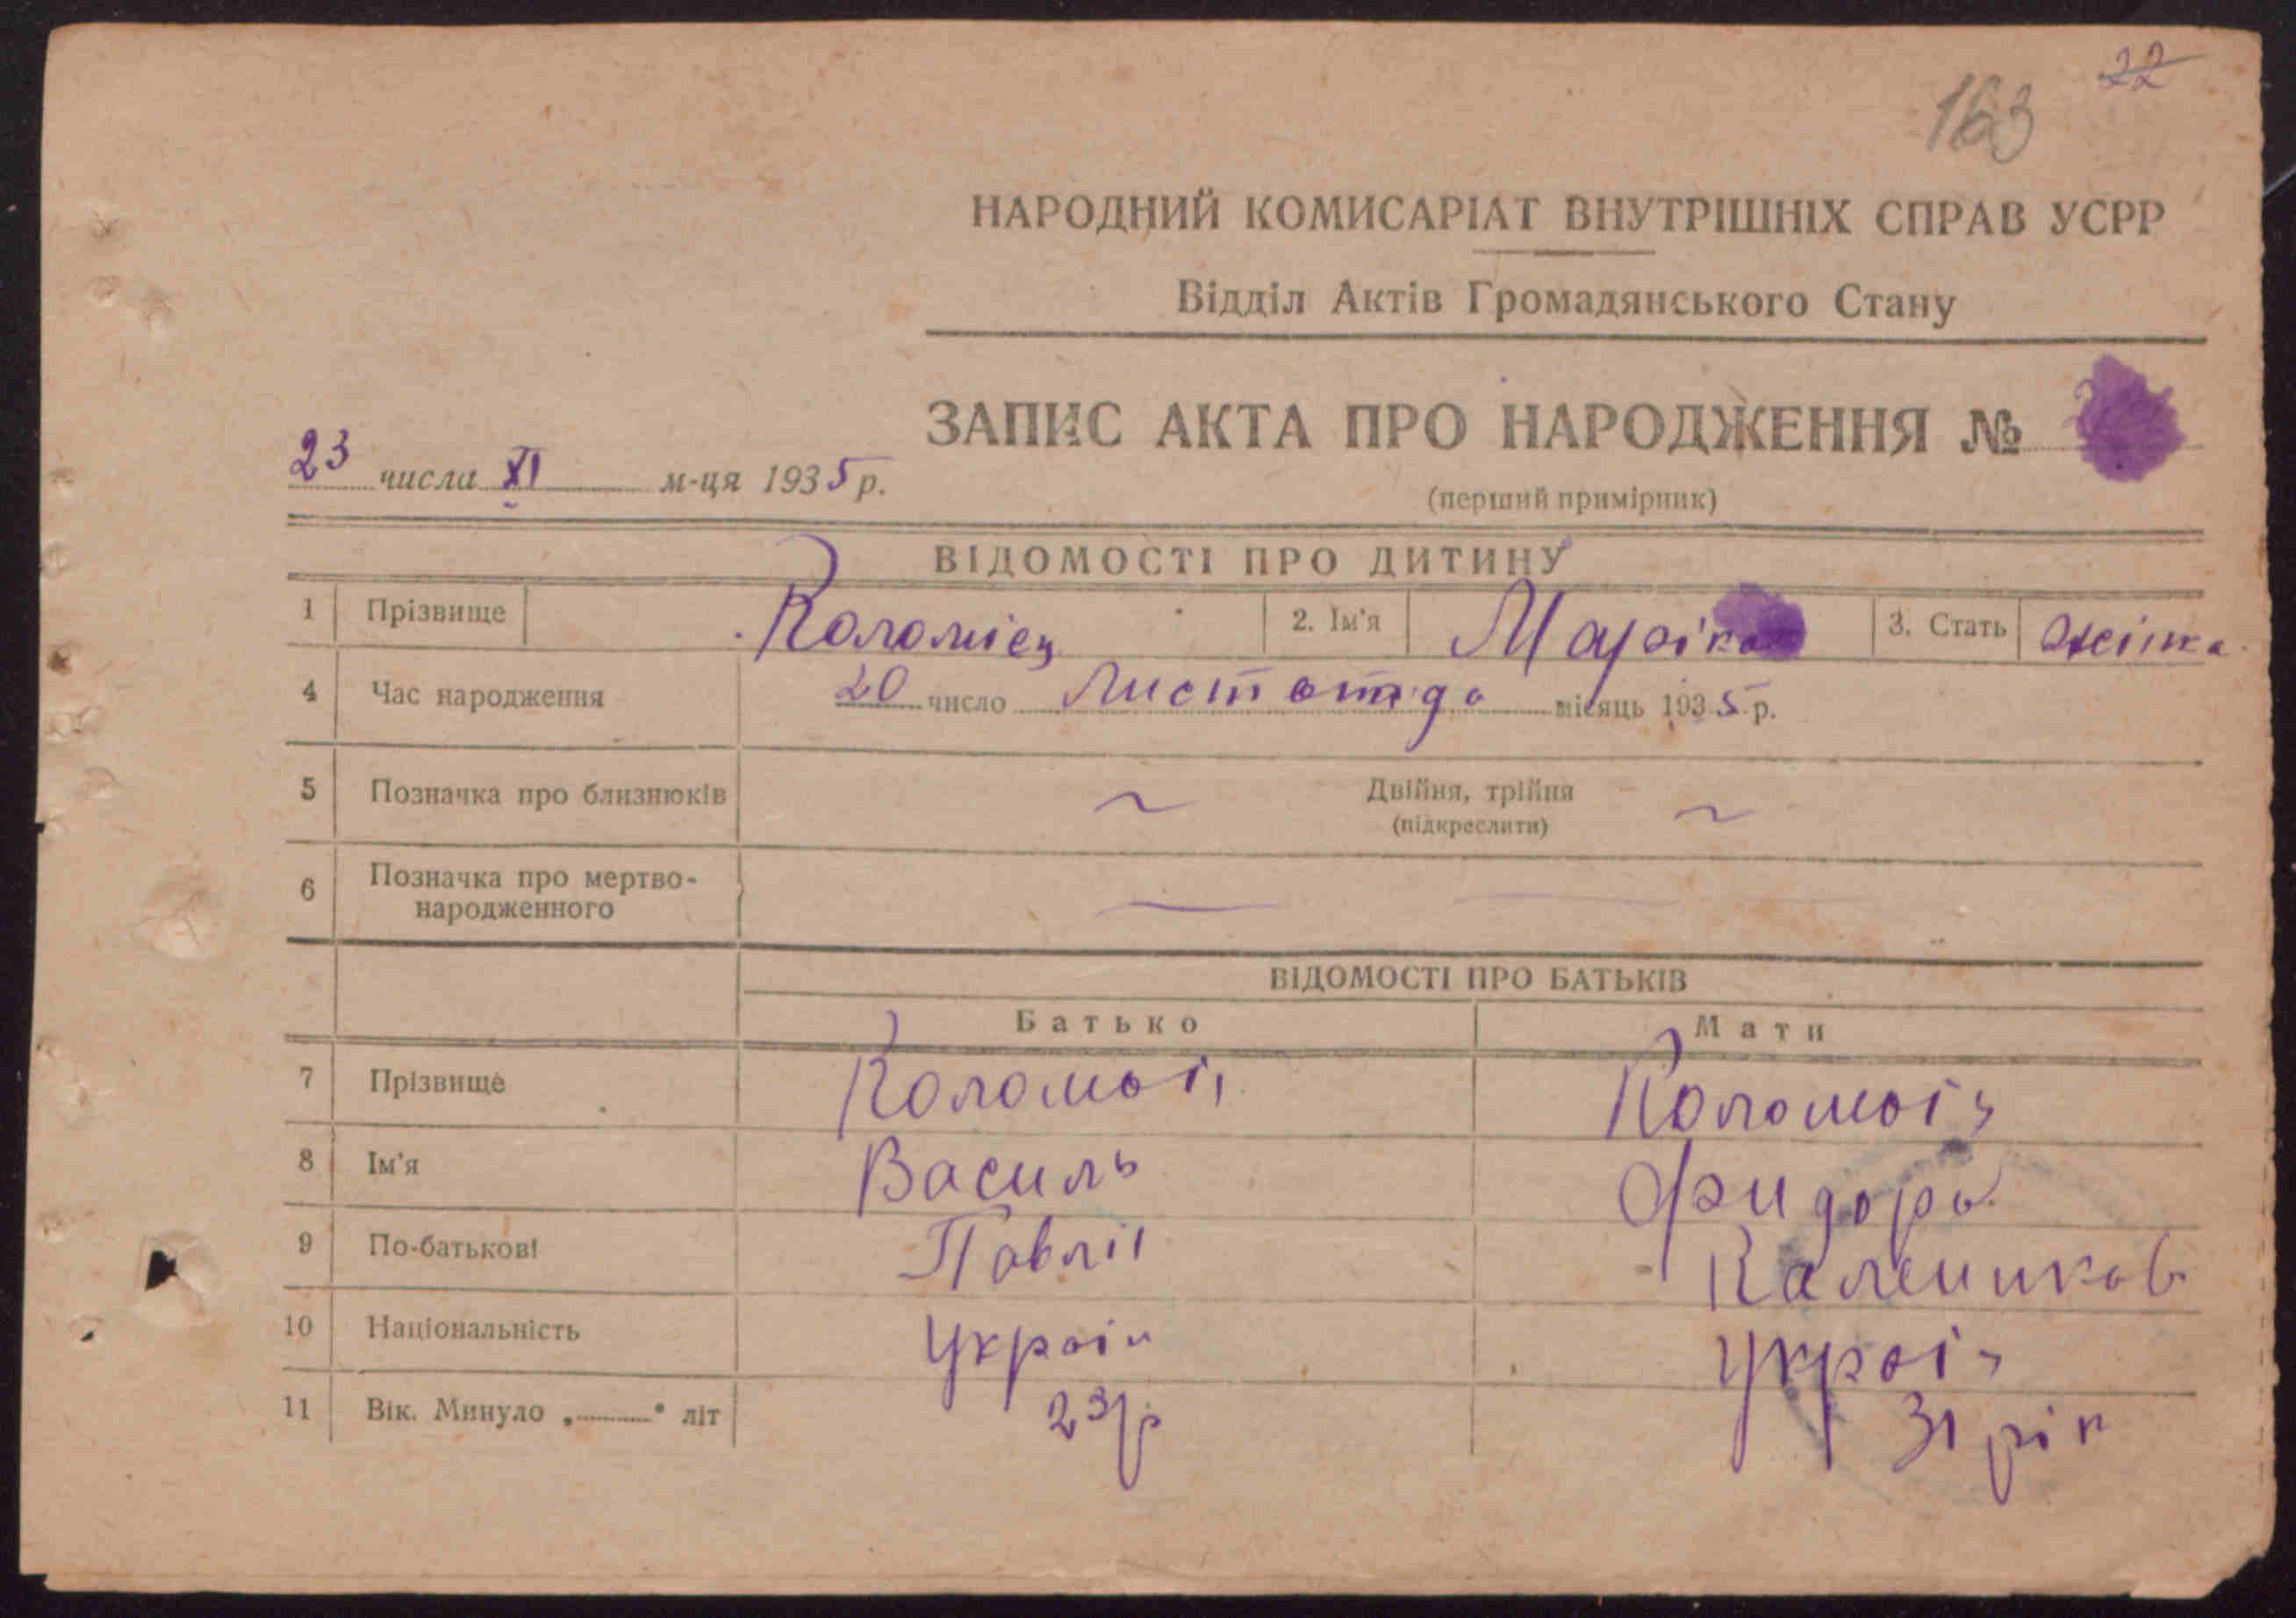 22
163
НАРОДНИЙ КОМИСАРІАТ ВНУТРІШНІХ СПРАВ УСРР
Відділ Актів Громадянського Стану
ЗАПИС АКТА ПРО НАРОДЖЕННЯ №
23 числа XI м-ця 1935 р.
(перший примірник)
ВІДОМОСТІ ПРО ДИТИНУ
1 Прізвище Коломієц 2. Ім'я 3. Стать Жінка
4 Час народження 20 число місяць 1935 р.
5 Позначка про близнюків Двійня, трійня
(підкреслити)
6 Позначка про мертво-
народженного
ВІДОМОСТІ ПРО БАТЬКІВ
Батько Мати
7 Прізвище Коломоіц Коломоіц
8 Ім'я Василь Фидора
9 По-батькові Павлі Калеников
10 Національність Украін Украін
11 Вік. Минуло „ “ літ 23 р 31 рік